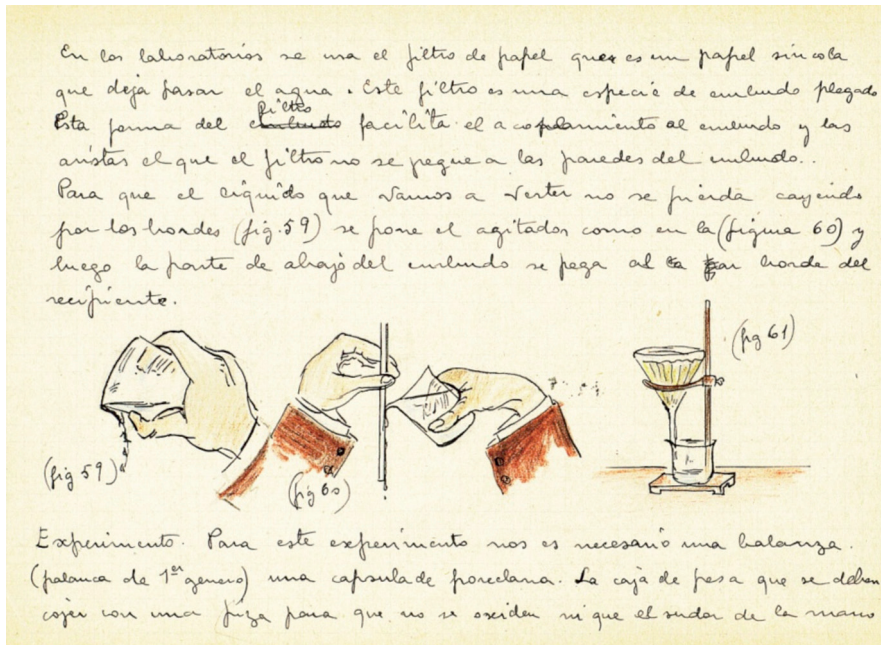 En los laboratorios se usa el filtro de papel que es un papel sin cola
que deja pasar el agua. Este filtro es una especie de embudo plegado
filtro
Esta forma del embudo facilita el acoplamiento al embudo y las
aristas el que el filtro no se pegue a las paredes del embudo..
Para que el líquido que vamos a verter no se pierda cayendo
por los bordes (fig. 59) se pone el agitador como en la (figura 60) y
luego la parte de abajo del embudo se pega al borde del
recipiente.
(fig 61)
(fig 59)
(fig 60)
Experimento. Para este experimento nos es necesario una balanza.
(palanca de 1er genero) una capsula de porcelana. La caja de pesa que se deben
cojer con una piza para que no se oxiden ni que el sudor de la mano